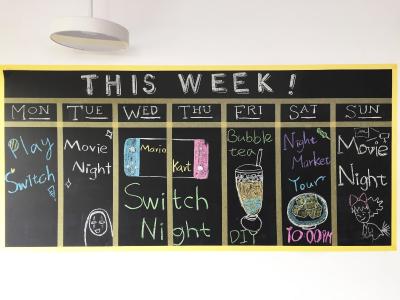 THIS WEEK!
MON TUE WED THU FRI SAT SUN
Play
Switch
Movie
Night
Mario Kart
Switch
Night
Bubble
tea
DIY
Night
Market
Tour
10:00PM
Movie
Night